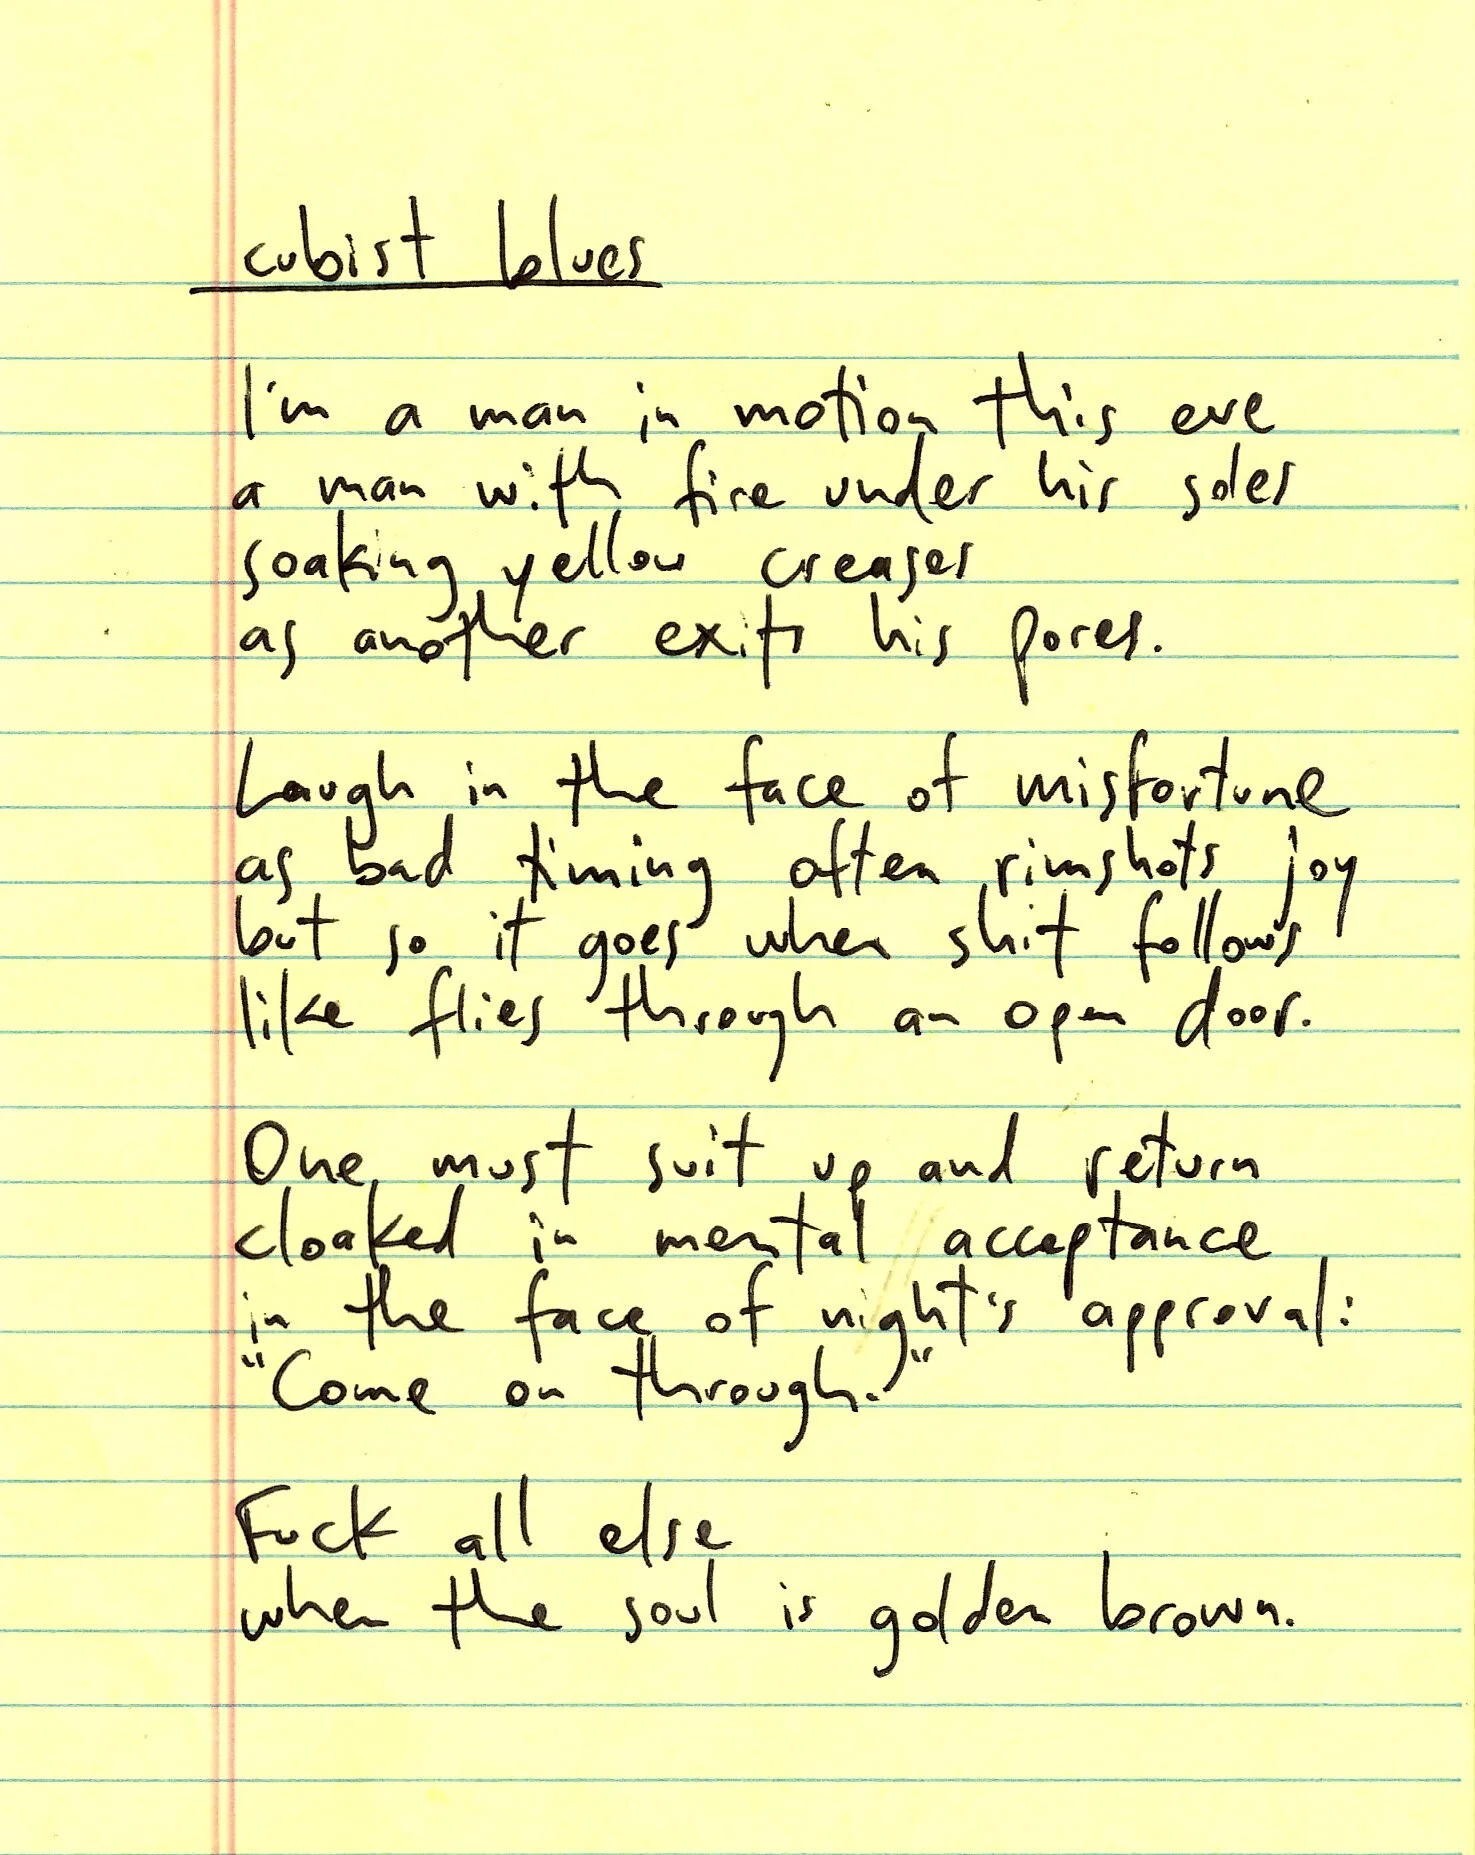 cubist blues
I'm a man in motion this eve
a man with fire under his soles
soaking yellow creases
as another exits his pores.
Laugh in the face of misfortune
as bad timing often rimshots joy
but so it goes when shit follows
like flies through an open door.
One must suit up and return
cloaked in mental acceptance
in the face of night's approval:
"Come on through."
Fuck all else
when the soul is golden brown.